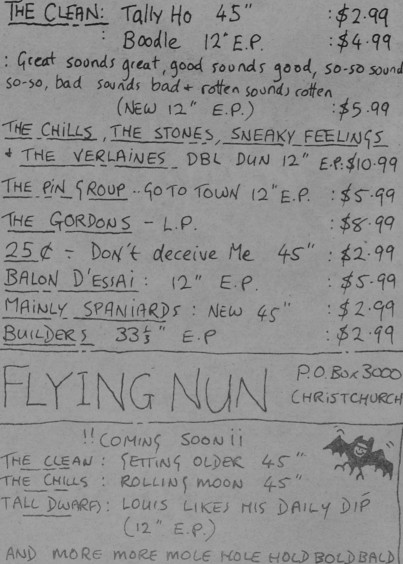 THE CLEAN: Tally Ho 45" : $2.99
: Boodle 12" E.P. : $4.99
: Great sounds great, good sounds good, so-so sound
so-so, bad sounds bad + rotten sounds rotten
(NEW 12" E.P.) : $5.99
THE CHILLS, THE STONES, SNEAKY FEELINGS
+ THE VERLAINES DBL DUN 12" E.P: $10.99
THE PIN GROUP .. GO TO TOWN 12" E.P. : $5.99
THE GORDONS - L.P. : $8.99
25¢ - DON'T deceive Me 45" : $2.99
BALON D'ESSAI : 12" E.P. : $5.99
MAINLY SPANIARDS : NEW 45" : $2.99
BUILDERS 33⅓" E.P : $2.99
FLYING NUN
P.O. Box 3000
CHRISTCHURCH
!! COMING SOON ¡¡
THE CLEAN : GETTING OLDER 45"
THE CHILLS : ROLLING MOON 45"
TALL DWARFS : LOUIS LIKES HIS DAILY DIP
(12" E.P.)
AND MORE MORE MORE MOLE HOLE HOLD BOLD BALD